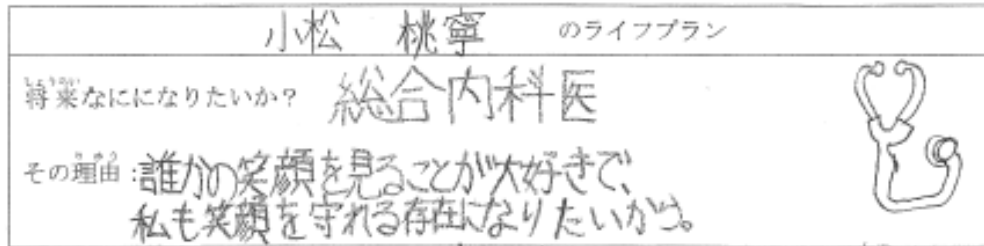 小松 桃寧 のライフプラン
将来なにになりたいか? 総合内科医
その理由:誰かの笑顔を見ることが大好きで、
私も笑顔を守れる存在になりたいから。